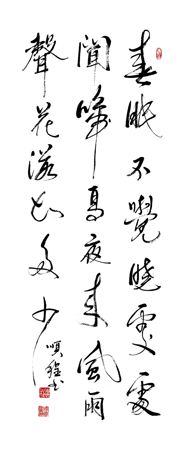 春眠不覺曉處處
聞啼鳥夜來風雨
聲花落知多少